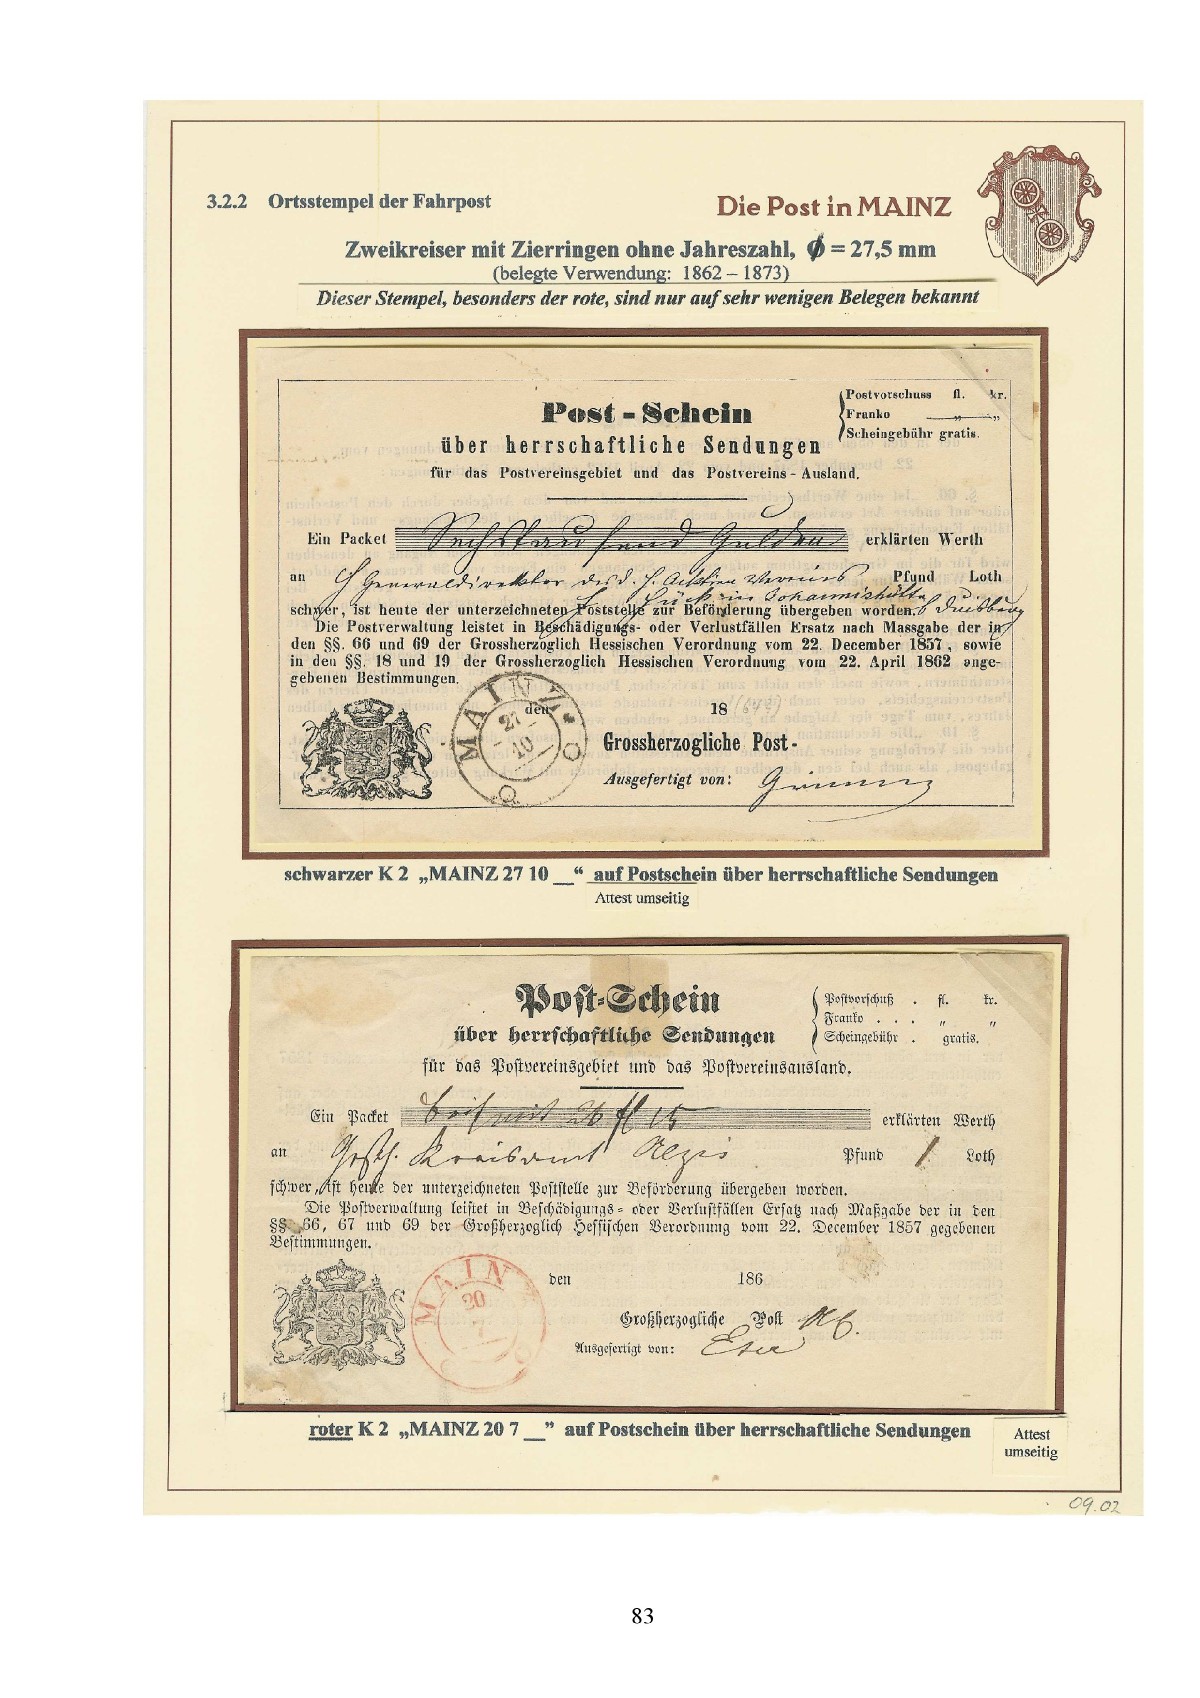 3.2.2 Ortsstempel der Fahrpost
Die Post in MAINZ
Zweikreiser mit Zierringen ohne Jahreszahl, Ø = 27,5 mm
(belegte Verwendung: 1862 – 1873)
Dieser Stempel, besonders der rote, sind nur auf sehr wenigen Belegen bekannt
Postvorschuss fl. kr.
Post-Schein
Franko „ „
Scheingebühr gratis.
über herrschaftliche Sendungen
für das Postvereinsgebiet und das Postvereins-Ausland.
Ein Packet Sechstausend Gulden erklärten Werth
an Generaldirektor des Aktien Vereines Pfund Loth
Johannishütte
schwer, ist heute der unterzeichneten Poststelle zur Beförderung übergeben worden. Duisburg
Die Postverwaltung leistet in Beschädigungs- oder Verlustfällen Ersatz nach Massgabe der in
den §§. 66 und 69 der Grossherzoglich Hessischen Verordnung vom 22. December 1857, sowie
in den §§. 18 und 19 der Grossherzoglich Hessischen Verordnung vom 22. April 1862 ange-
gebenen Bestimmungen.
MAINZ
27
10
den 18
Grossherzogliche Post-
Ausgefertigt von:
schwarzer K 2 „MAINZ 27 10 __“ auf Postschein über herrschaftliche Sendungen
Attest umseitig
Post-Schein
Postvorschuß . fl. kr.
Franko . . . „ „
Scheingebühr . gratis.
über herrschaftliche Sendungen
für das Postvereinsgebiet und das Postvereinsausland.
Ein Packet 26 fl 15 erklärten Werth
an Kreisamt Alzei Pfund 1 Loth
schwer, ist heute der unterzeichneten Poststelle zur Beförderung übergeben worden.
Die Postverwaltung leistet in Beschädigungs- oder Verlustfällen Ersatz nach Maßgabe der in den
§§ 66, 67 und 69 der Großherzoglich Hessischen Verordnung vom 22. December 1857 gegebenen
Bestimmungen.
MAIN
20
7
den 186
Großherzogliche Post
Ausgefertigt von:
roter K 2 „MAINZ 20 7 __” auf Postschein über herrschaftliche Sendungen
Attest
umseitig
09.02
83